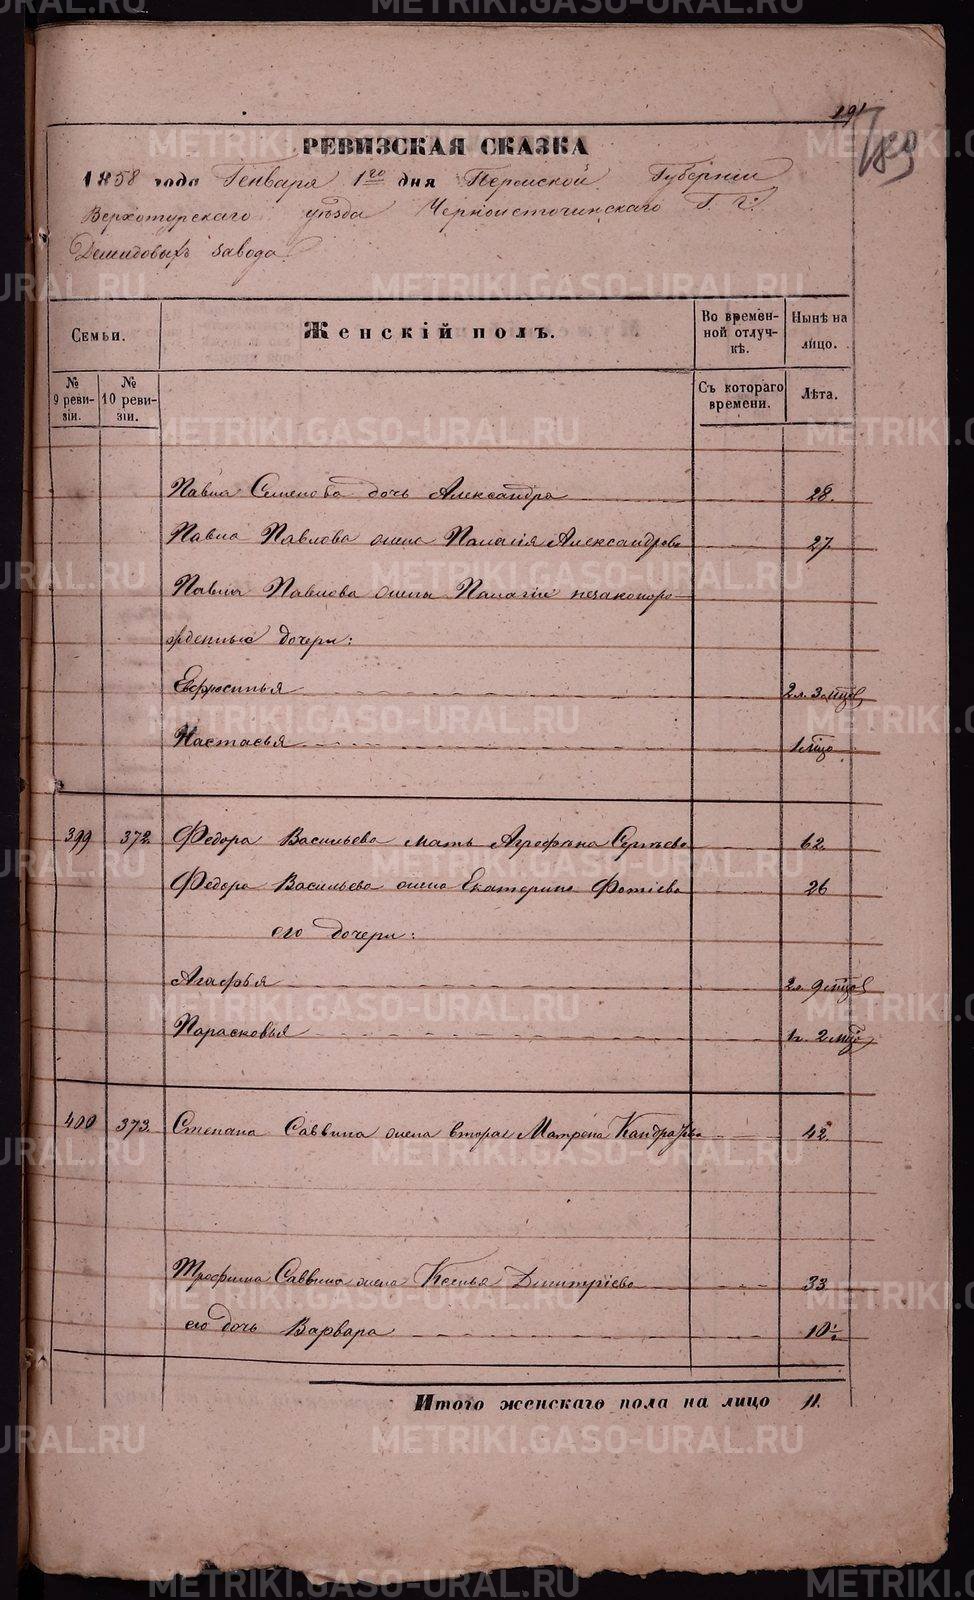 191
189
РЕВИЗСКАЯ СКАЗКА
1858 года Генваря 1го дня Пермской Губернии
Верхотурскаго уезда Черноисточинскаго Г. г:
Демидовыхъ завода.
Семьи.
Женскій полъ.
Во времен-
ной отлуч-
кѣ.
Нынѣ на
лицо.
№
9 реви-
зіи.
№
10 реви-
зіи.
Съ котораго
времени.
Лѣта.
Павла Семенова дочь Александра 28.
Павла Павлова жена Палагія Александрова 27.
Павла Павлова жены Палагіи незаконоро-
жденные дочери:
Евфросинья 2 л. 3 мцов
Настасья 1 мцо
399 372. Федора Васильева мать Агрофена Сергѣева 62.
Федора Васильева жена Екатерина Фотіева 26
его дочери:
Агафья 2 л. 9 мцов
Парасковья 1 г. 2 мцо
400 373. Степана Саввина жена вторая Матрена Кандратьева 42.
Трофима Саввина жена Ксенья Дмитріева 33.
его дочь Варвара 10½
Итого женскаго пола на лицо 11.
METRIKI.GASO-URAL.RU